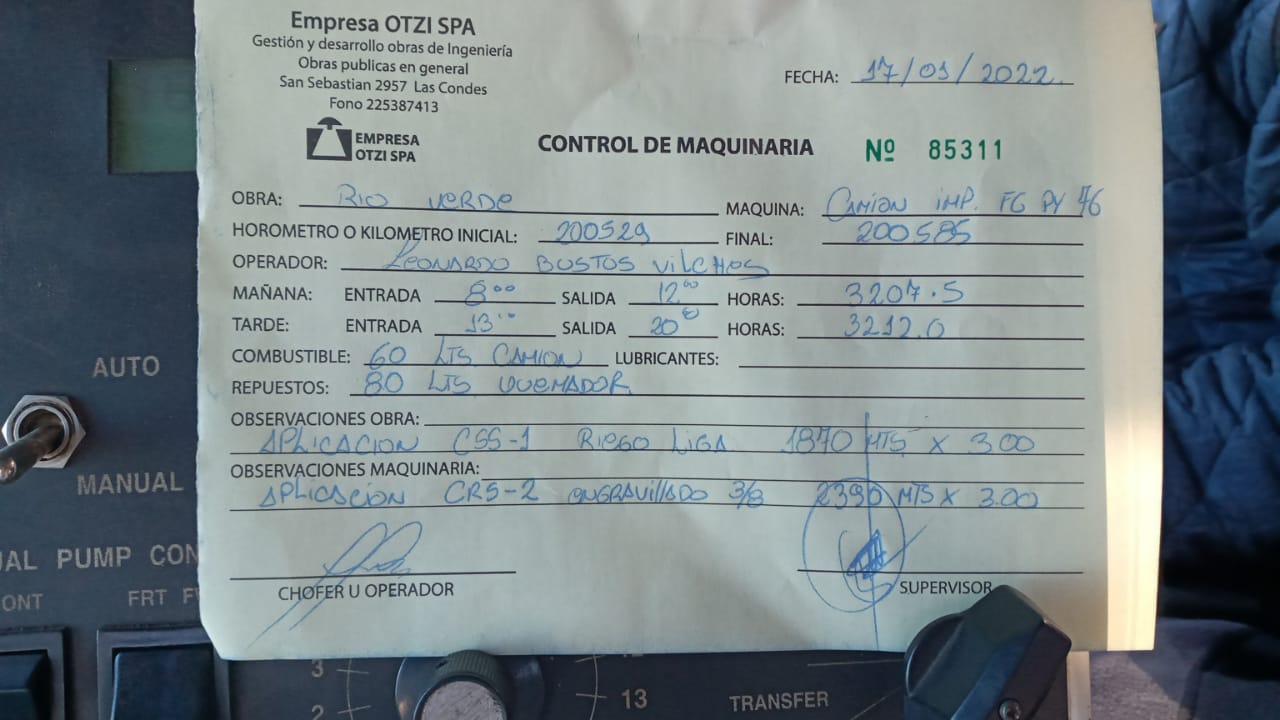 Empresa OTZI SPA
Gestión y desarrollo obras de Ingeniería
Obras publicas en general
San Sebastian 2957 Las Condes
Fono 225387413
FECHA: 17/01/2022
EMPRESA
OTZI SPA
CONTROL DE MAQUINARIA Nº 85311
OBRA: RIO VERDE MAQUINA: CAMION IMP. FG PY 76
HOROMETRO O KILOMETRO INICIAL: 200529 FINAL: 200585
OPERADOR: LEONARDO BUSTOS VILCHES
MAÑANA: ENTRADA 8⁰⁰ SALIDA 12⁰⁰ HORAS: 3207.5
TARDE: ENTRADA 13⁰⁰ SALIDA 20⁰⁰ HORAS: 3212.0
COMBUSTIBLE: 60 LTS CAMION LUBRICANTES:
REPUESTOS: 80 LTS QUEMADOR
OBSERVACIONES OBRA:
APLICACION CSS-1 RIEGO LIGA 1870 MTS X 3.00
OBSERVACIONES MAQUINARIA:
APLICACION CRS-2 ENGRAVILLADO 3/8 2390 MTS X 3.00
CHOFER U OPERADOR SUPERVISOR
AUTO
MANUAL
UAL PUMP CON
ONT FRT F
3
2
13
TRANSFER